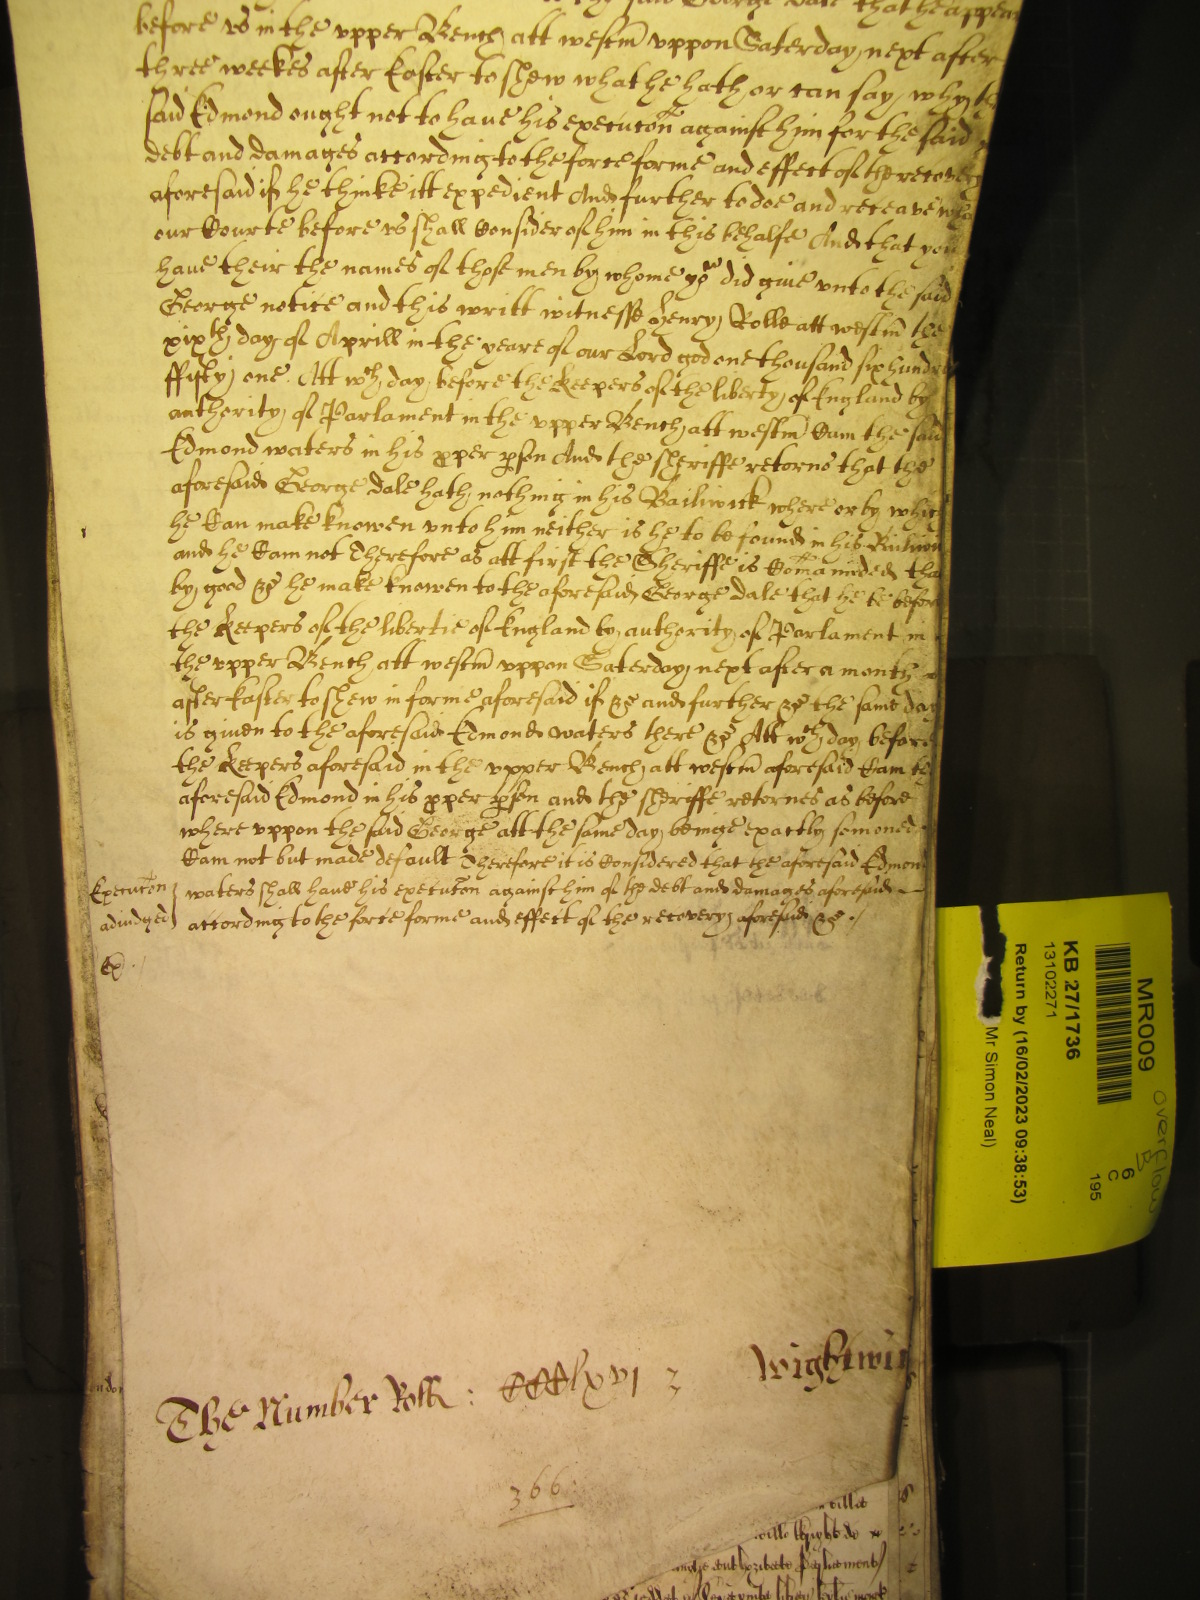 said George Dale that he appear
before vs in the vpper Bench att westm̃ vppon Saterday next after
three weekes after Easter to shew what he hath or can say why the
said Edmond ought not to have his execucõn against him for the said
debt and damages according to the force forme and effect of the recovery
aforesaid if he thinke itt expedient And further to doe and receave what
our Courte before vs shall Consider of him in this behalfe And that you
have their the names of those men by whome yow did give vnto the said
George notice and this writt witnesse Henry Rolle att westm̃ the
xixth day of Aprill in the yeare of our Lord god one thousand six hundred
ffifty one. Att wch day before the Keepers of the liberty of England by
authority of Parlament in the vpper Bench att westm̃ Cam the said
Edmond waters in his pper pson And the sheriffe retorns that the
aforesaid George Dale hath nothing in his Bailiwick where or by which
he Can make knowen vnto him neither is he to be found in his Bailiw
and he Cam not Therefore as att first the Sheriffe is Comaunded that
by good &c he make knowen to the aforesaid George Dale that he be before
the Keepers of the libertie of England by authority of Parlament in
the vpper Bench att westm̃ vppon Saterday next after a month
after Easter to shew in forme aforesaid if &c and further &c the same day
is given to the aforesaid Edmond waters there &c Att wch day before
the Keepers aforesaid in the vpper Bench att westm̃ aforesaid Cam the
aforesaid Edmond in his pper pson and the sheriffe retornes as before
where vppon the said George att the same day beinge exactly somoned
Cam not but made default Therefore it is Considered that the aforesaid Edmond
Execucõn waters shall have his execucõn against him of the debt and damages aforesaid
adiudged according to the force forme and effect of the recovery aforesaid &c ./
The Number Roll : CCClxvj
Wightwi
366
MR009
KB 27/1736
13102271
Return by (16/02/2023 09:38:53)
Mr Simon Neal)
Overflow
B
6
C
195